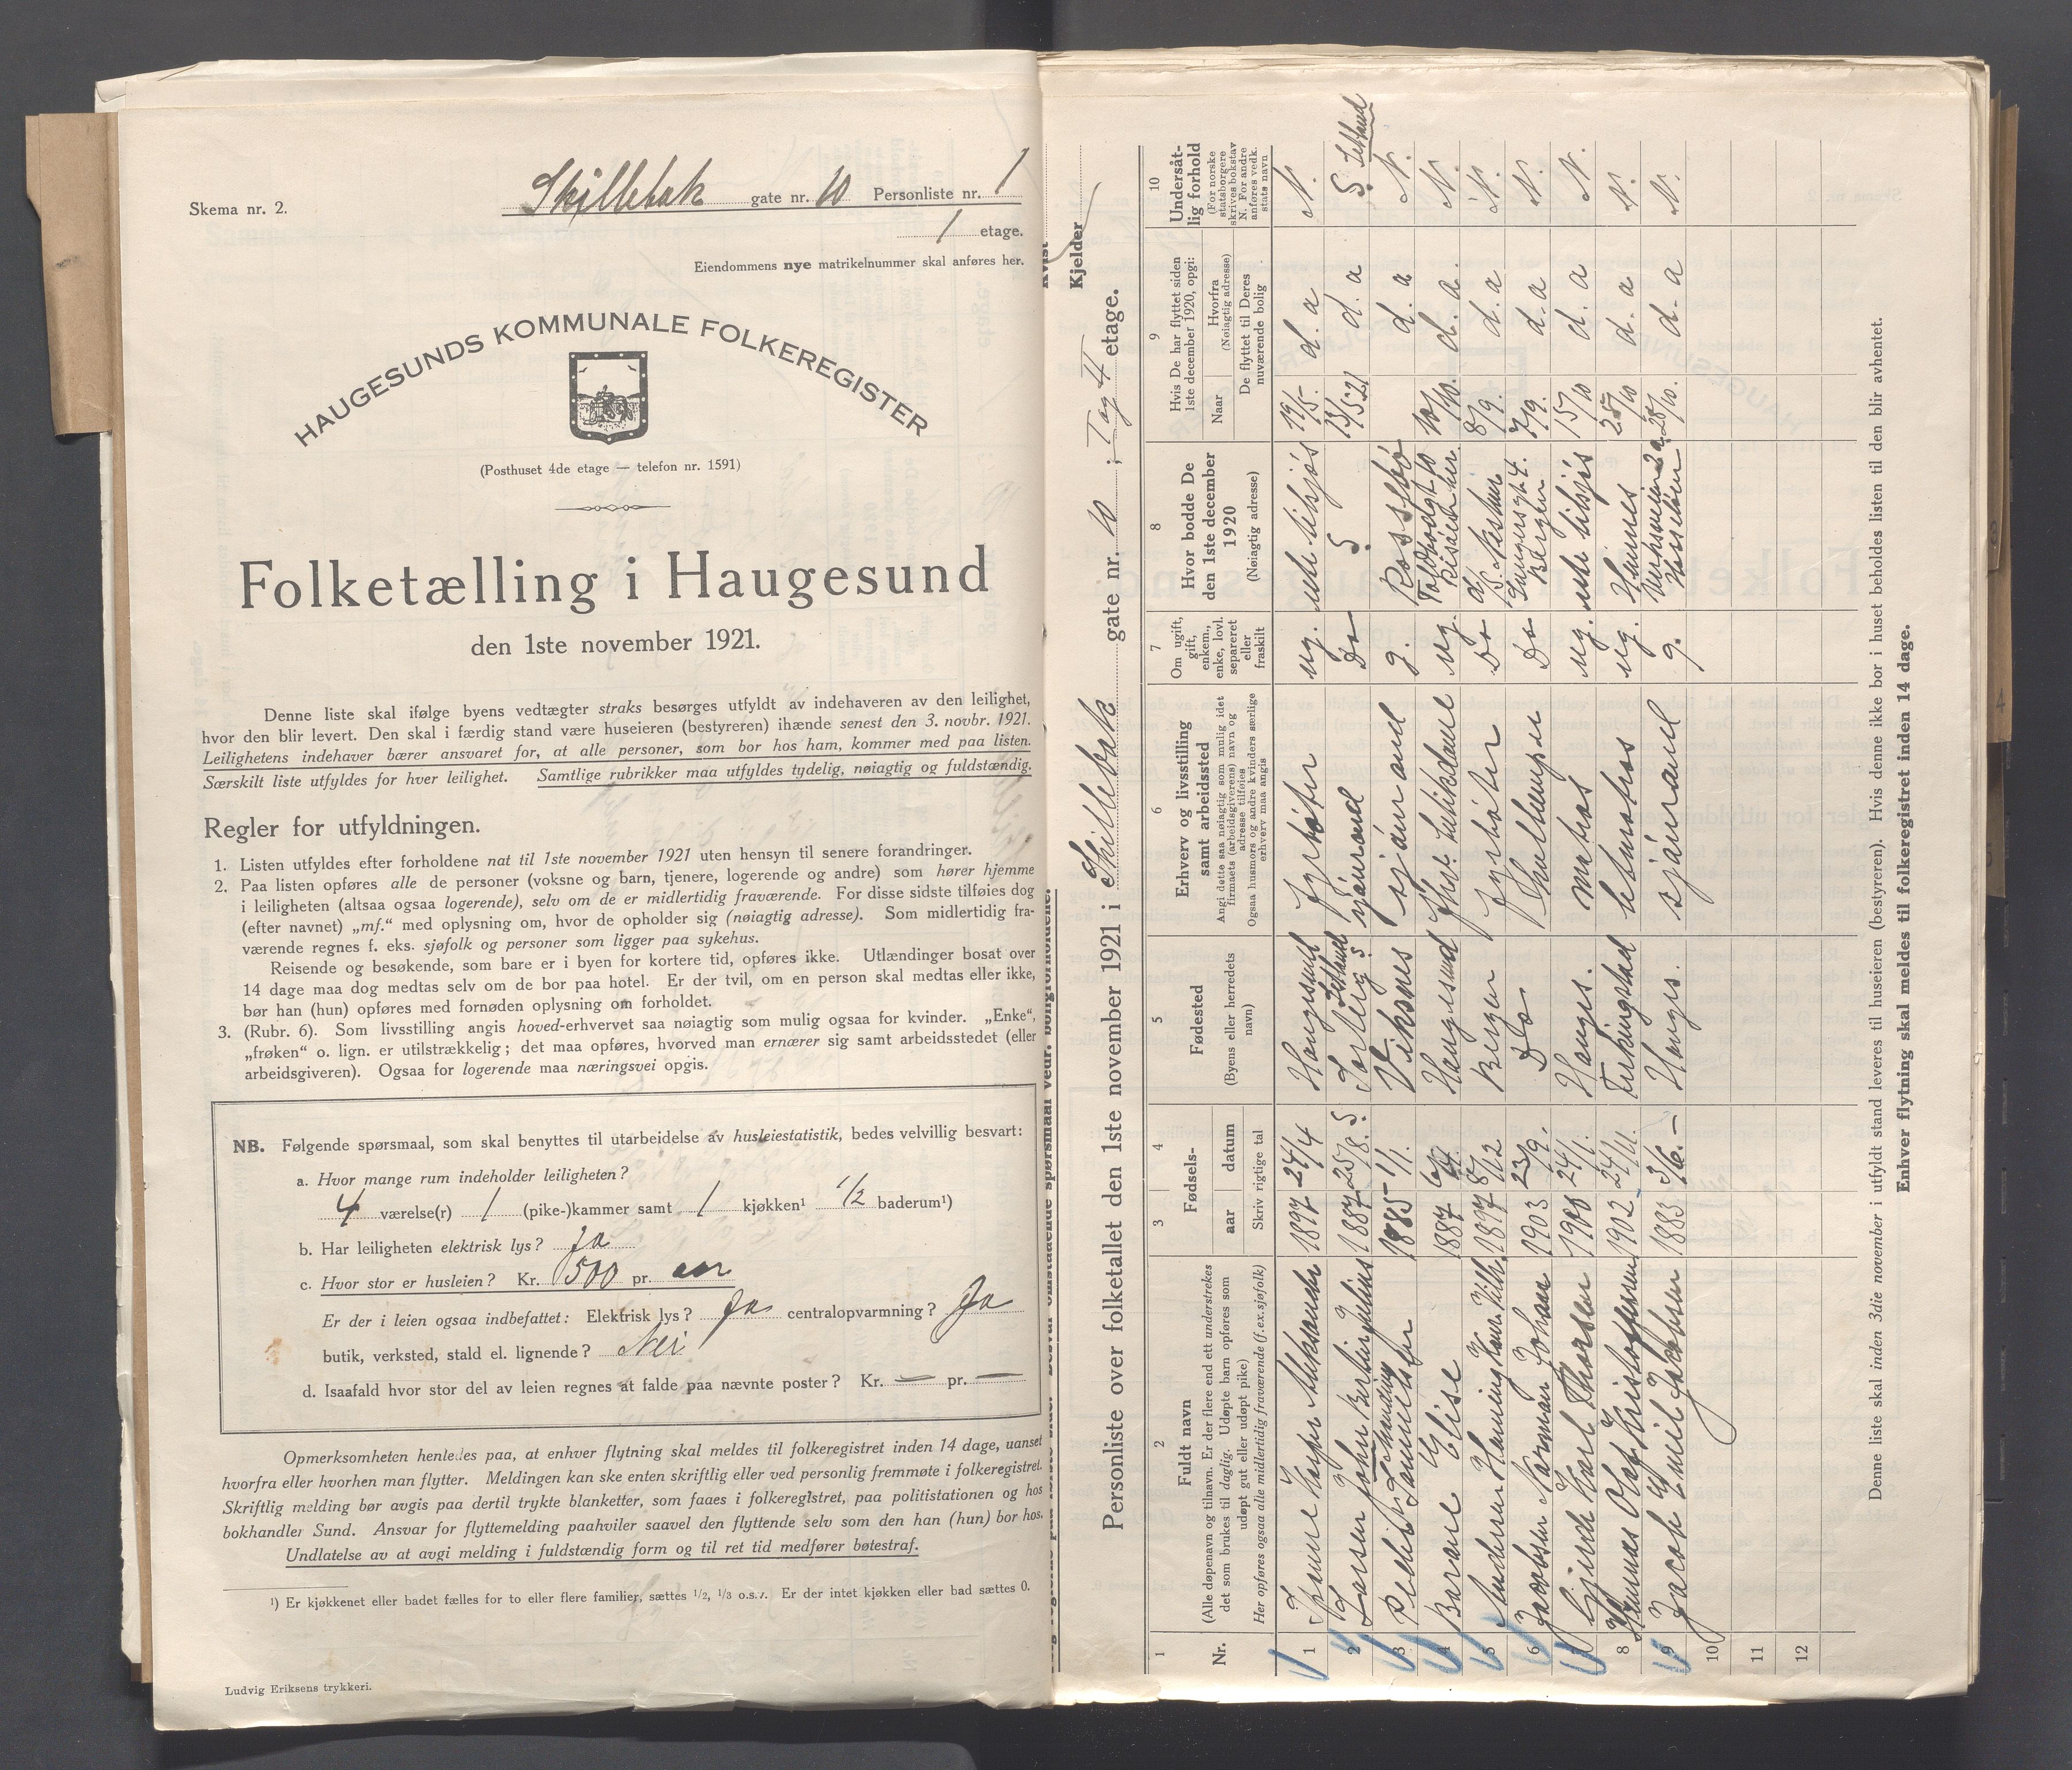 Skema nr. 2.
Skillebæk gate nr. 10 Personliste nr. 1
1 etage.
Eiendommens nye matrikelnummer skal anføres her.
HAUGESUNDS KOMMUNALE FOLKEREGISTER
(Posthuset 4de etage — telefon nr. 1591)
Folketælling i Haugesund
den 1ste november 1921.
Denne liste skal ifølge byens vedtægter straks besørges utfyldt av indehaveren av den leilighet,
hvor den blir levert. Den skal i færdig stand være huseieren (bestyreren) ihænde senest den 3. novbr. 1921.
Leilighetens indehaver bærer ansvaret for, at alle personer, som bor hos ham, kommer med paa listen.
Særskilt liste utfyldes for hver leilighet. Samtlige rubrikker maa utfyldes tydelig, nøiagtig og fuldstændig.
Regler for utfyldningen.
1. Listen utfyldes efter forholdene nat til 1ste november 1921 uten hensyn til senere forandringer.
2. Paa listen opføres alle de personer (voksne og barn, tjenere, logerende og andre) som hører hjemme
i leiligheten (altsaa ogsaa logerende), selv om de er midlertidig fraværende. For disse sidste tilføies dog
(efter navnet) „mf.“ med oplysning om, hvor de opholder sig (nøiagtig adresse). Som midlertidig fra-
værende regnes f. eks. sjøfolk og personer som ligger paa sykehus.
Reisende og besøkende, som bare er i byen for kortere tid, opføres ikke. Utlændinger bosat over
14 dage maa dog medtas selv om de bor paa hotel. Er der tvil, om en person skal medtas eller ikke,
bør han (hun) opføres med fornøden oplysning om forholdet.
3. (Rubr. 6). Som livsstilling angis hoved-erhvervet saa nøiagtig som mulig ogsaa for kvinder. „Enke“,
„frøken“ o. lign. er utilstrækkelig; det maa opføres, hvorved man ernærer sig samt arbeidsstedet (eller
arbeidsgiveren). Ogsaa for logerende maa næringsvei opgis.
NB. Følgende spørsmaal, som skal benyttes til utarbeidelse av husleiestatistik, bedes velvillig besvart:
a. Hvor mange rum indeholder leiligheten?
4 værelse(r) 1 (pike-)kammer samt 1 kjøkken¹ 1/2 baderum¹)
b. Har leiligheten elektrisk lys? Ja
c. Hvor stor er husleien? Kr. 500 pr. aar
Er der i leien ogsaa indbefattet: Elektrisk lys? Ja centralopvarmning? Ja
butik, verksted, stald el. lignende? Nei
d. Isaafald hvor stor del av leien regnes at falde paa nævnte poster? Kr. — pr. —
Opmerksomheten henledes paa, at enhver flytning skal meldes til folkeregistret inden 14 dage, uanset
hvorfra eller hvorhen man flytter. Meldingen kan ske enten skriftlig eller ved personlig fremmøte i folkeregistret.
Skriftlig melding bør avgis paa dertil trykte blanketter, som faaes i folkeregistret, paa politistationen og hos
bokhandler Sund. Ansvar for flyttemelding paahviler saavel den flyttende selv som den han (hun) bor hos.
Undlatelse av at avgi melding i fuldstændig form og til ret tid medfører bøtestraf.
¹) Er kjøkkenet eller badet fælles for to eller flere familier, sættes 1/2, 1/3 o.s.v. Er der intet kjøkken eller bad sættes 0.
Ludvig Eriksens trykkeri.
Kvist
Kjelder
Personliste over folketallet den 1ste november 1921 i Skillebæk gate nr. 10 ; etage.
1 2 3 4 5 6 7 8 9 10
Nr.
Fuldt navn
(Alle døpenavn og tilnavn. Er der flere end ett understrekes
det som brukes til daglig. Udøpte barn opføres som
udøpt gut eller udøpt pike)
Her opføres ogsaa alle midlertidig fraværende (f.ex.sjøfolk)
Fødsels-
aar datum
Skriv rigtige tal
Fødested
(Byens eller herredets
navn)
Erhverv og livsstilling
samt arbeidssted
Angi dette saa nøiagtig som mulig idet
firmaets (arbeidsgiverens) navn og
adresse tilføies
Ogsaa husmors og andre kvinders særlige
erhverv maa angis
Om ugift,
gift,
enkem.,
enke, lovl.
separeret
eller
fraskilt
Hvor bodde De
den 1ste december
1920
(Nøiagtig adresse)
Hvis De har flyttet siden
1ste december 1920, opgi:
Naar Hvorfra
(Nøiagtig adresse)
De flyttet til Deres
nuværende bolig
Undersåt-
lig forhold
(For norske
statsborgere
skrives bokstav
N. For andre
anføres vedk.
stats navn
1 Kasper Aleksander 1897 24/4 Haugesund fyrbøter ug. ute tilsjøs 19/5. d. a N.
2 Larsen John Berlin Julius 1887 25/8. S. sjømand Do S. 13/5 21 d. a S. Estland
3 1885 1/1. Viksnes sjømand g. Rossebø d. a N.
4 Barane Elise 1887 Haugesund ug. 10/10. d. a. N.
5 Andersen Henning 1897 8/12 Bergen fyrbøter Do 8/9. d. a N.
6 Jacobsen Norman Johan 1903 23/9. Do Do Bergen 7/9. d. a N.
7 Gjerde Karl Thorsten 1900 24/1. Hauges. matros ug. ute tilsjøs 15/10 d. a N.
8 Olaf Kristoffersen 1902 24/11. letmatros ug. 25/10 d. a N.
9 Jacob Emil Jakobsen 1883 3/6. — Hauges. sjømand g. 28/10. d. a N.
10
11
12
Denne liste skal inden 3die november i utfyldt stand leveres til huseieren (bestyreren). Hvis denne ikke bor i huset beholdes listen til den blir avhentet.
Enhver flytning skal meldes til folkeregistret inden 14 dage.